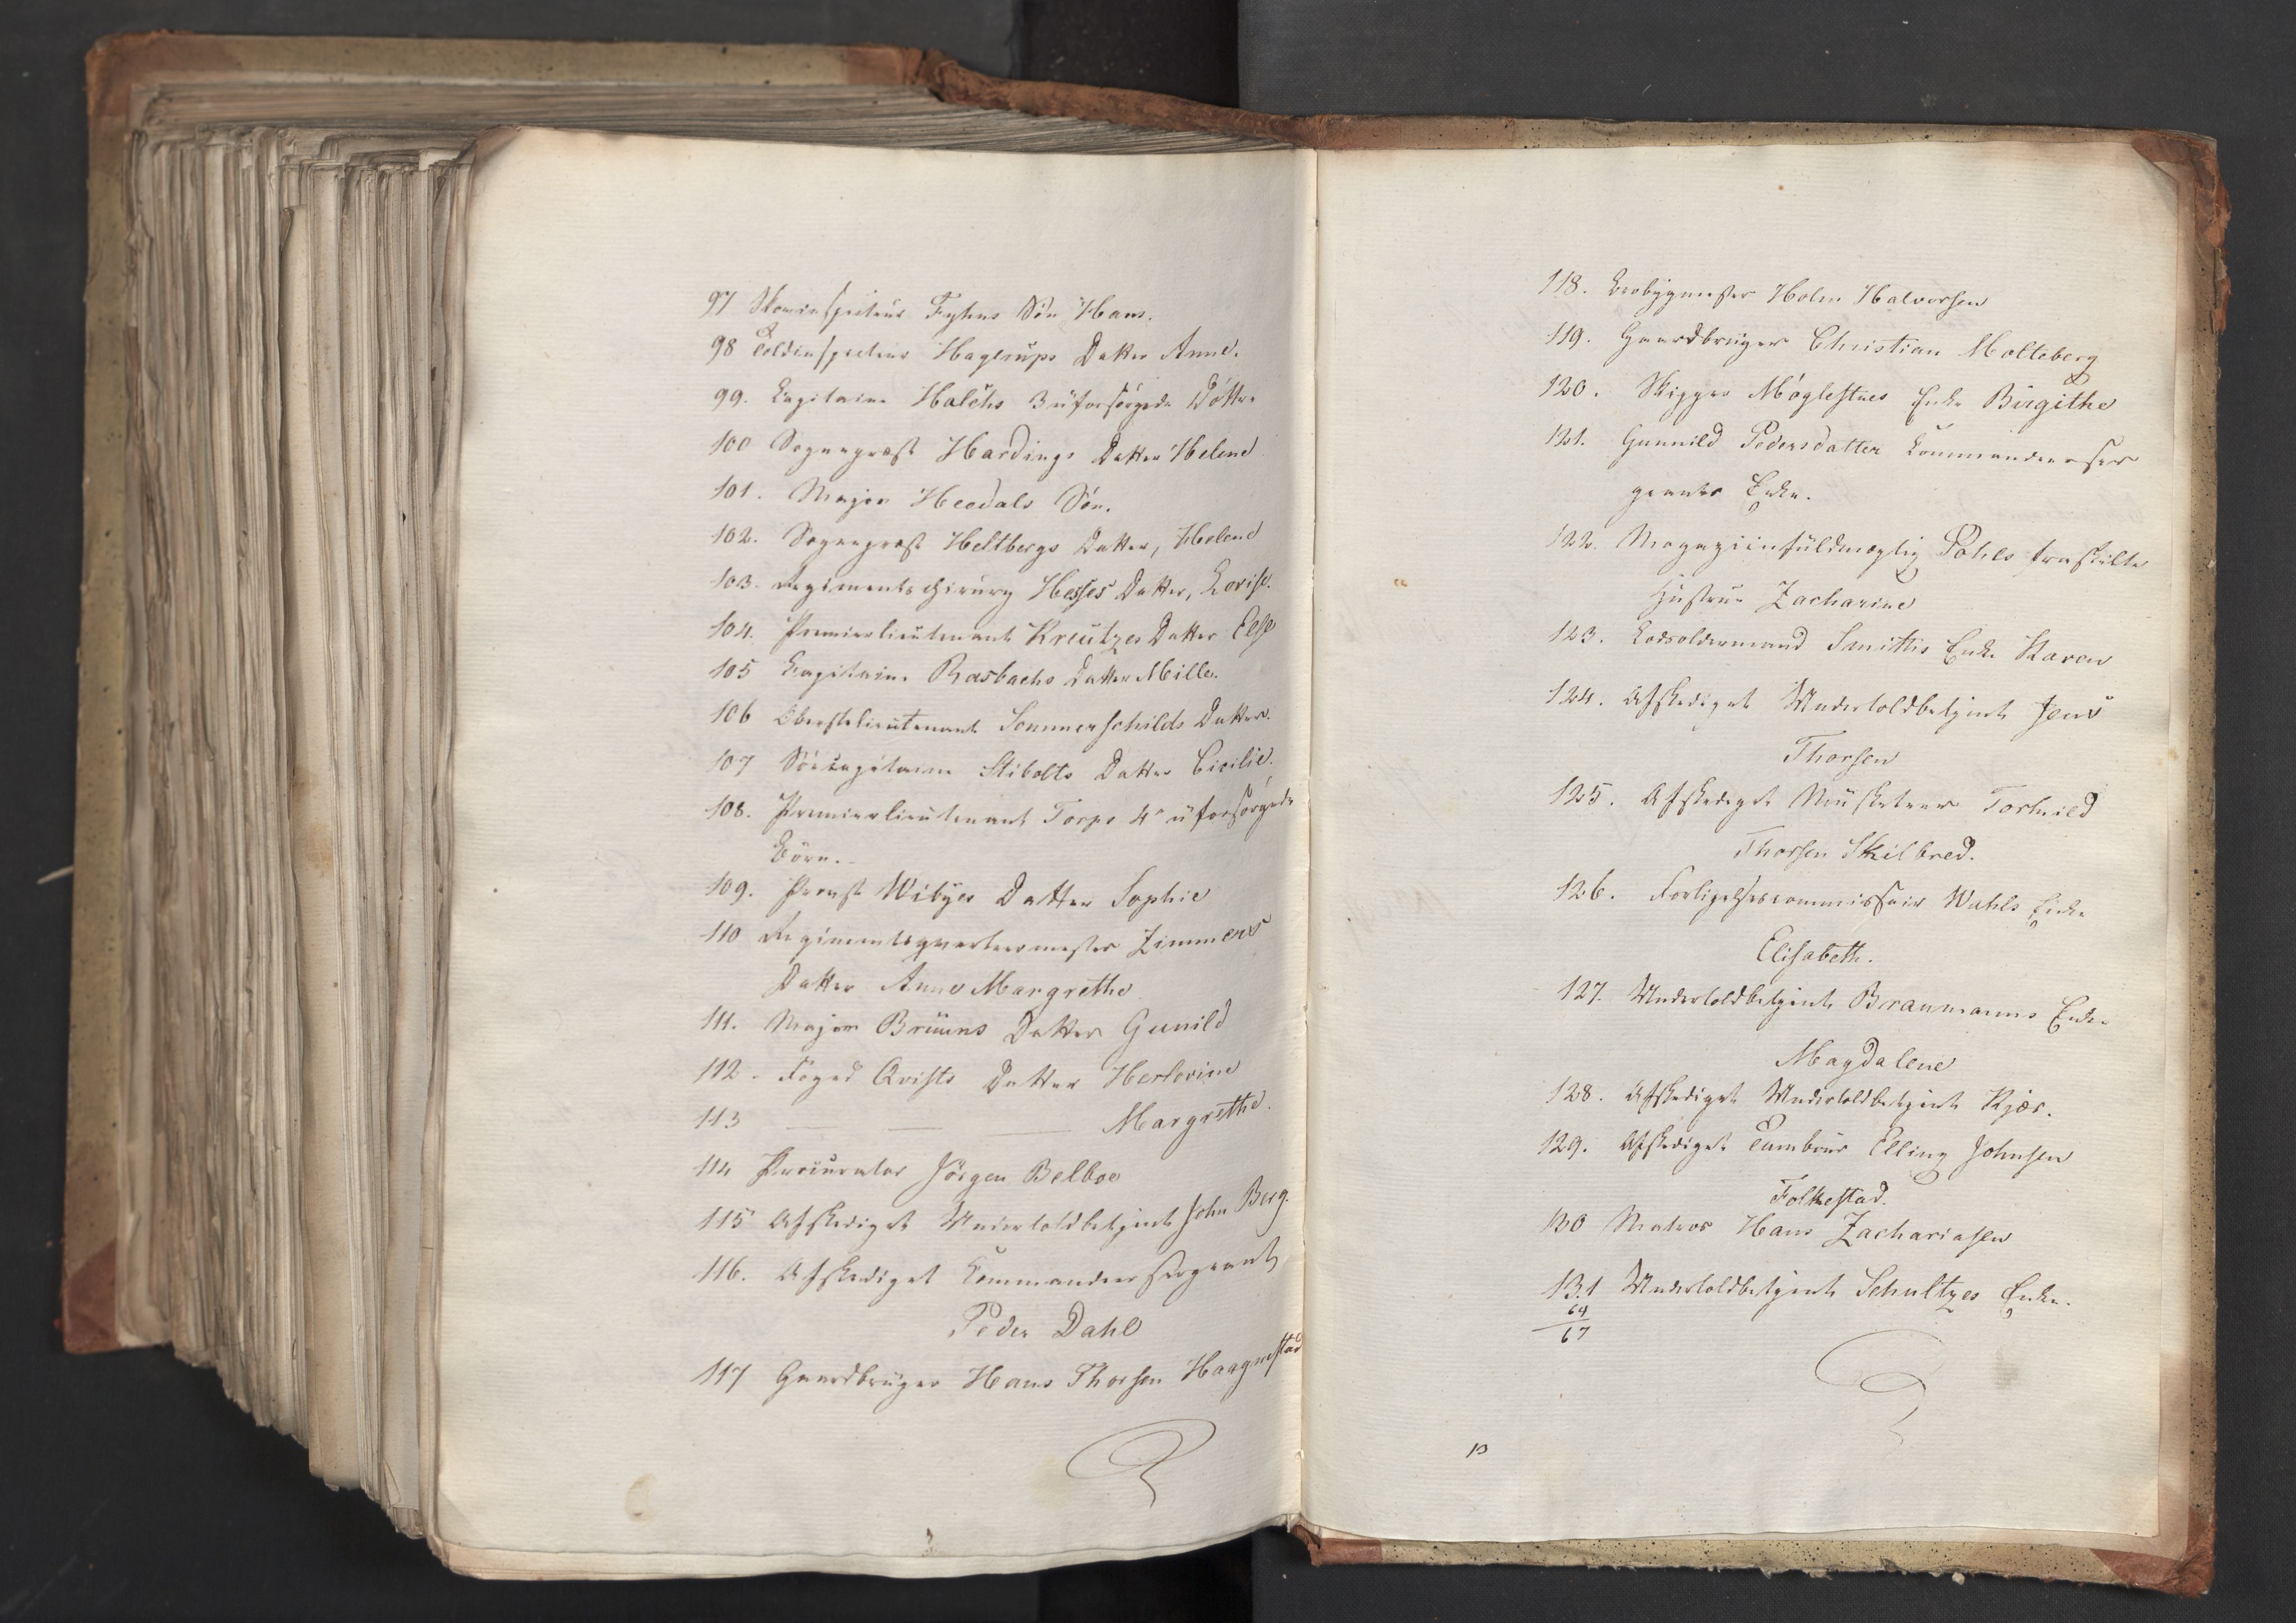 97 Skoeinspecteur Fyhns Søn Hans.
98 Toldinspecteur Hagerups Datter Anne.
99. Capitaine Halchs 3 uforsørgede Døttre
100 Sognepræst Hardings Datter Helene
101. Major Heedals Søn.
102. Sognepræst Heltbergs Datter, Helene
103. Regimentschirurg Hesses Datter, Lovise.
104. Premierlieutenant Kreutzes Datter Else
105 Capitaine Rasbachs Datter Mille.
106 Oberstelieutenant Sommerschilds Datter.
107 Søecapitaine Stibolts Datter Cicilie.
108. Premierlieutenant Torps 4re uforsørgede
Børn.
109. Provst Wibyes Datter Sophie
110 Regimentsqvarteermester Zimmers
Datter Anne Margrethe
111. Major Bruuns Datter Gunild
112. Foged Qvists Datter Herlovine
113 — — — Margrethe.
114 Procurator Jörgen Belboe
115 Afskediget Undertoldbetjent John Berg.
116. Afskediget Commandeersergeant
Peder Dahl
117 Gaardbruger Hans Thorsen Haagnestad
118. Brobygmester Holm Halvorsen
119. Gaardbruger Christian Molteberg
120. Skipper Möglestues Enke Birgithe
121. Gunnild Pedersdatter Commandeerser
geants Enke.
122. Magaziinfuldmægtig Pohls fraskilte
Hustrue Zacharine
123. Lodsoldermand Smitths Enke Karen
124. Afskediget Undertoldbetjent Jens
Thorsen
125. Afskediget Musketeer Torkield
Thorsen Skilbred.
126. Forligelsescommissair Wahls Enke
Elisabeth.
127. Undertoldbetjent Braumanns Enke
Magdalene
128. Afskediget Undertoldbetjent Kjær.
129. Afskediget Tambour Elling Johnsen
Folkestad.
130 Matros Hans Zachariasen
131 Undertoldbetjent Schultzes Enke.
64
67